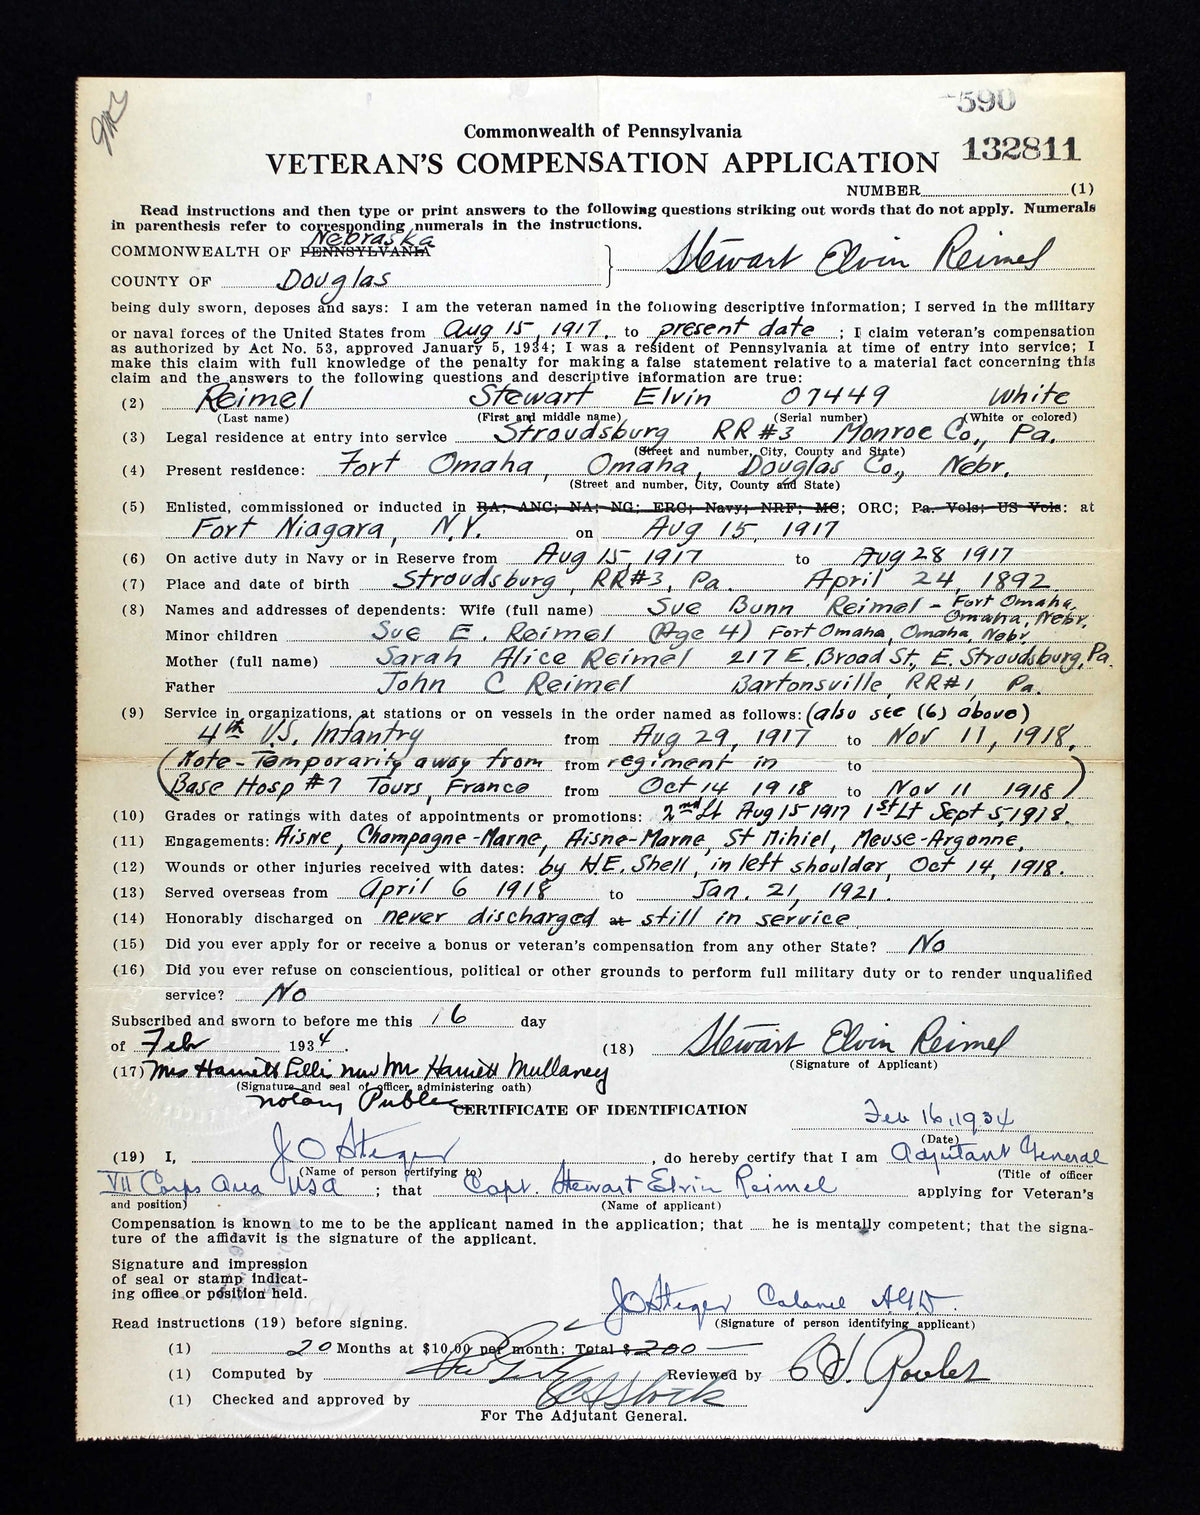 590
Commonwealth of Pennsylvania
VETERAN'S COMPENSATION APPLICATION 132811
NUMBER (1)
Read instructions and then type or print answers to the following questions striking out words that do not apply. Numerals
in parenthesis refer to corresponding numerals in the instructions.
Nebraska
COMMONWEALTH OF PENNSYLVANIA
Stewart Elvin Reimel
COUNTY OF Douglas
being duly sworn, deposes and says: I am the veteran named in the following descriptive information; I served in the military
or naval forces of the United States from Aug 15, 1917. to present date; I claim veteran's compensation
as authorized by Act No. 53, approved January 5, 1934; I was a resident of Pennsylvania at time of entry into service; I
make this claim with full knowledge of the penalty for making a false statement relative to a material fact concerning this
claim and the answers to the following questions and descriptive information are true:
(2) Reimel Stewart Elvin 07449 White
(Last name) (First and middle name) (Serial number) (White or colored)
(3) Legal residence at entry into service Stroudsburg RR#3 Monroe Co., Pa.
(Street and number, City, County and State)
(4) Present residence: Fort Omaha, Omaha, Douglas Co., Nebr.
(Street and number, City, County and State)
(5) Enlisted, commissioned or inducted in RA; ANC; NA; NG; ERC; Navy; NRF; MC; ORC; Pa. Vols; US Vols: at
Fort Niagara, N.Y. on Aug 15, 1917
(6) On active duty in Navy or in Reserve from Aug 15, 1917 to Aug 28 1917
(7) Place and date of birth Stroudsburg, RR#3, Pa. April 24, 1892
(8) Names and addresses of dependents: Wife (full name) Sue Bunn Reimel - Fort Omaha,
Omaha, Nebr.
Minor children Sue E. Reimel (Age 4) Fort Omaha, Omaha, Nebr.
Mother (full name) Sarah Alice Reimel 217 E. Broad St., E. Stroudsburg, Pa.
Father John C Reimel Bartonsville, RR#1, Pa.
(9) Service in organizations, at stations or on vessels in the order named as follows: (also see (6) above)
4th U.S. Infantry from Aug 29, 1917 to Nov 11, 1918.
(Note - Temporarity away from from regiment in to
Base Hosp #7 Tours, France from Oct 14 1918 to Nov 11 1918)
(10) Grades or ratings with dates of appointments or promotions: 2nd Lt Aug 15 1917 1st Lt Sept 5, 1918.
(11) Engagements: Aisne, Champagne-Marne, Aisne-Marne, St Mihiel, Meuse-Argonne,
(12) Wounds or other injuries received with dates: by H.E. Shell, in left shoulder, Oct 14, 1918.
(13) Served overseas from April 6 1918 to Jan. 21, 1921.
(14) Honorably discharged on never discharged at still in service
(15) Did you ever apply for or receive a bonus or veteran's compensation from any other State? No
(16) Did you ever refuse on conscientious, political or other grounds to perform full military duty or to render unqualified
service? No
Subscribed and sworn to before me this 16 day
of Feb 1934.
(18) Stewart Elvin Reimel
(Signature of Applicant)
(17) Mrs Harriett Lilli now Mrs Harriett Mullaney
(Signature and seal of officer administering oath)
Notary Public
CERTIFICATE OF IDENTIFICATION
Feb 16, 1934
(Date)
(19) I, J O Steger, do hereby certify that I am Adjutant General
(Name of person certifying to) (Title of officer
VII Corps Area USA; that Capt. Stewart Elvin Reimel applying for Veteran's
and position) (Name of applicant)
Compensation is known to me to be the applicant named in the application; that he is mentally competent; that the signa-
ture of the affidavit is the signature of the applicant.
Signature and impression
of seal or stamp indicat-
ing office or position held.
J O Steger Colonel A.G.D.
Read instructions (19) before signing. (Signature of person identifying applicant)
(1) 20 Months at $10.00 per month: Total $ 200
(1) Computed by Reviewed by
(1) Checked and approved by
For The Adjutant General.